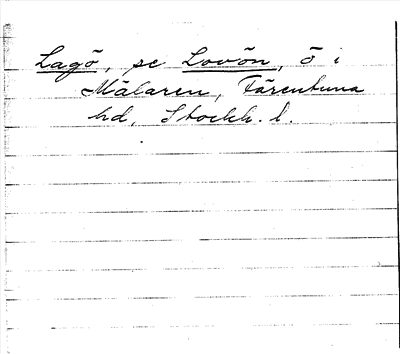 Lagö, se Lovön, ö i
Mälaren, Färentuna
hd, Stockh. l.